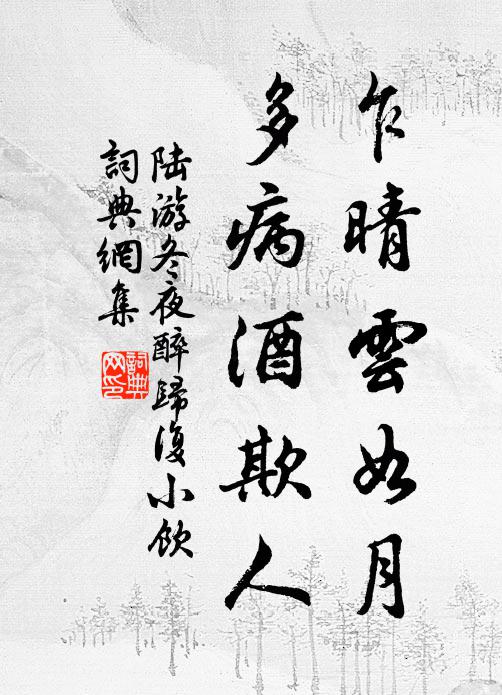 乍晴雲妒月
多病酒欺人
陆游冬夜醉歸復小飲
詞典網集
詞典网印